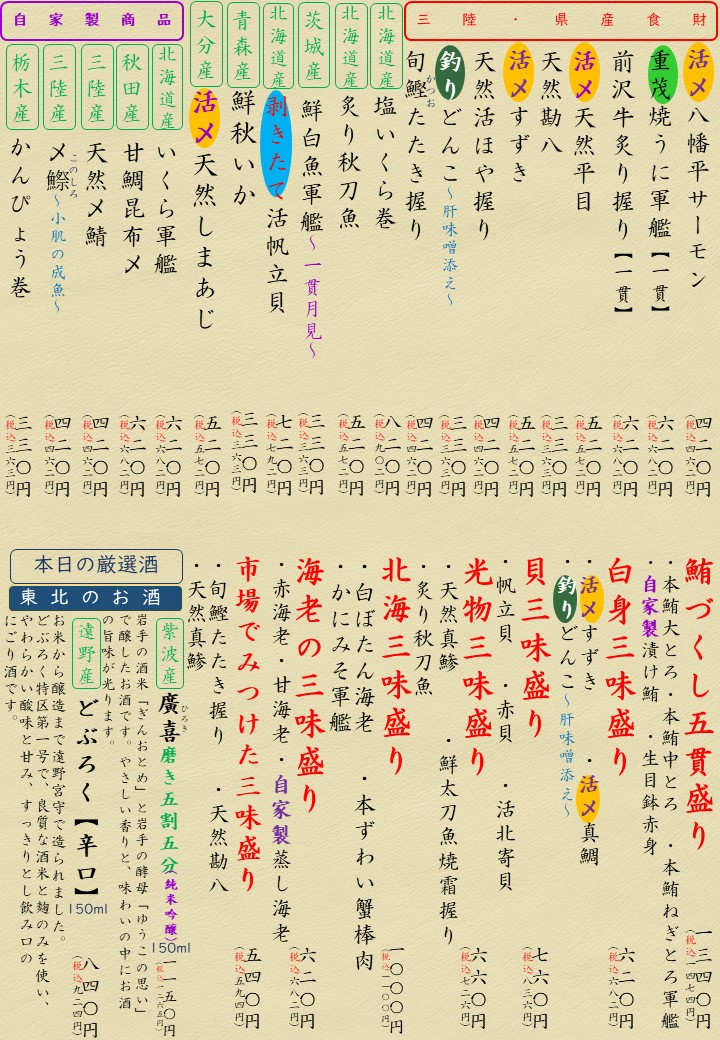 三陸・県産食財
活〆八幡平サーモン
四二〇円
(税込四六二円)
重茂焼うに軍艦【一貫】
六二〇円
(税込六八二円)
前沢牛炙り握り【一貫】
六二〇円
(税込六八二円)
活〆天然平目
五二〇円
(税込五七二円)
天然勘八
三三〇円
(税込三六三円)
活〆すずき
五二〇円
(税込五七二円)
天然活ほや握り
四二〇円
(税込四六二円)
釣りどんこ～肝味噌添え～
三三〇円
(税込三六三円)
旬鰹たたき握り
かつお
四二〇円
(税込四六二円)
北海道産
塩いくら巻
八二〇円
(税込九〇二円)
北海道産
炙り秋刀魚
五二〇円
(税込五七二円)
茨城産
鮮白魚軍艦～一貫月見～
三三〇円
(税込三六三円)
北海道産
剥きたて活帆立貝
七二〇円
(税込七九二円)
青森産
鮮秋いか
三三〇円
(税込三六三円)
大分産
活〆天然しまあじ
五二〇円
(税込五七二円)
自家製商品
北海道産
いくら軍艦
六二〇円
(税込六八二円)
秋田産
甘鯛昆布〆
六二〇円
(税込六八二円)
三陸産
天然〆鯖
四二〇円
(税込四六二円)
三陸産
〆鰶～小肌の成魚～
このしろ
四二〇円
(税込四六二円)
栃木産
かんぴょう巻
三三〇円
(税込三六三円)
鮪づくし五貫盛り
一三四〇円
(税込一四七四円)
・本鮪大とろ・本鮪中とろ・本鮪ねぎとろ軍艦
・自家製漬け鮪・生目鉢赤身
白身三味盛り
六二〇円
(税込六八二円)
・活〆すずき・活〆真鯛
・釣りどんこ～肝味噌添え～
貝三味盛り
七六〇円
(税込八三六円)
・帆立貝・赤貝・活北寄貝
光物三味盛り
六六〇円
(税込七二六円)
・天然真鯵・鮮太刀魚焼霜握り
・炙り秋刀魚
北海三味盛り
一〇〇〇円
(税込一一〇〇円)
・白ぼたん海老・本ずわい蟹棒肉
・かにみそ軍艦
海老の三味盛り
六二〇円
(税込六八二円)
・赤海老・甘海老・自家製蒸し海老
市場でみつけた三味盛り
五四〇円
(税込五九四円)
・旬鰹たたき握り・天然勘八
・天然真鯵
本日の厳選酒
東北のお酒
紫波産
廣喜磨き五割五分(純米吟醸)150ml
ひろき
一一五〇円
(税込一二六五円)
岩手の酒米「ぎんおとめ」と岩手の酵母「ゆうこの思い」
で醸したお酒です。やさしい香りと、味わいの中にお酒
の旨味が光ります。
遠野産
どぶろく【辛口】150ml
八四〇円
(税込九二四円)
お米から醸造まで遠野宮守で造られました。
どぶろく特区第一号で、良質な酒米と麹のみを使い、
やわらかい酸味と甘み、すっきりとし飲み口の
にごり酒です。